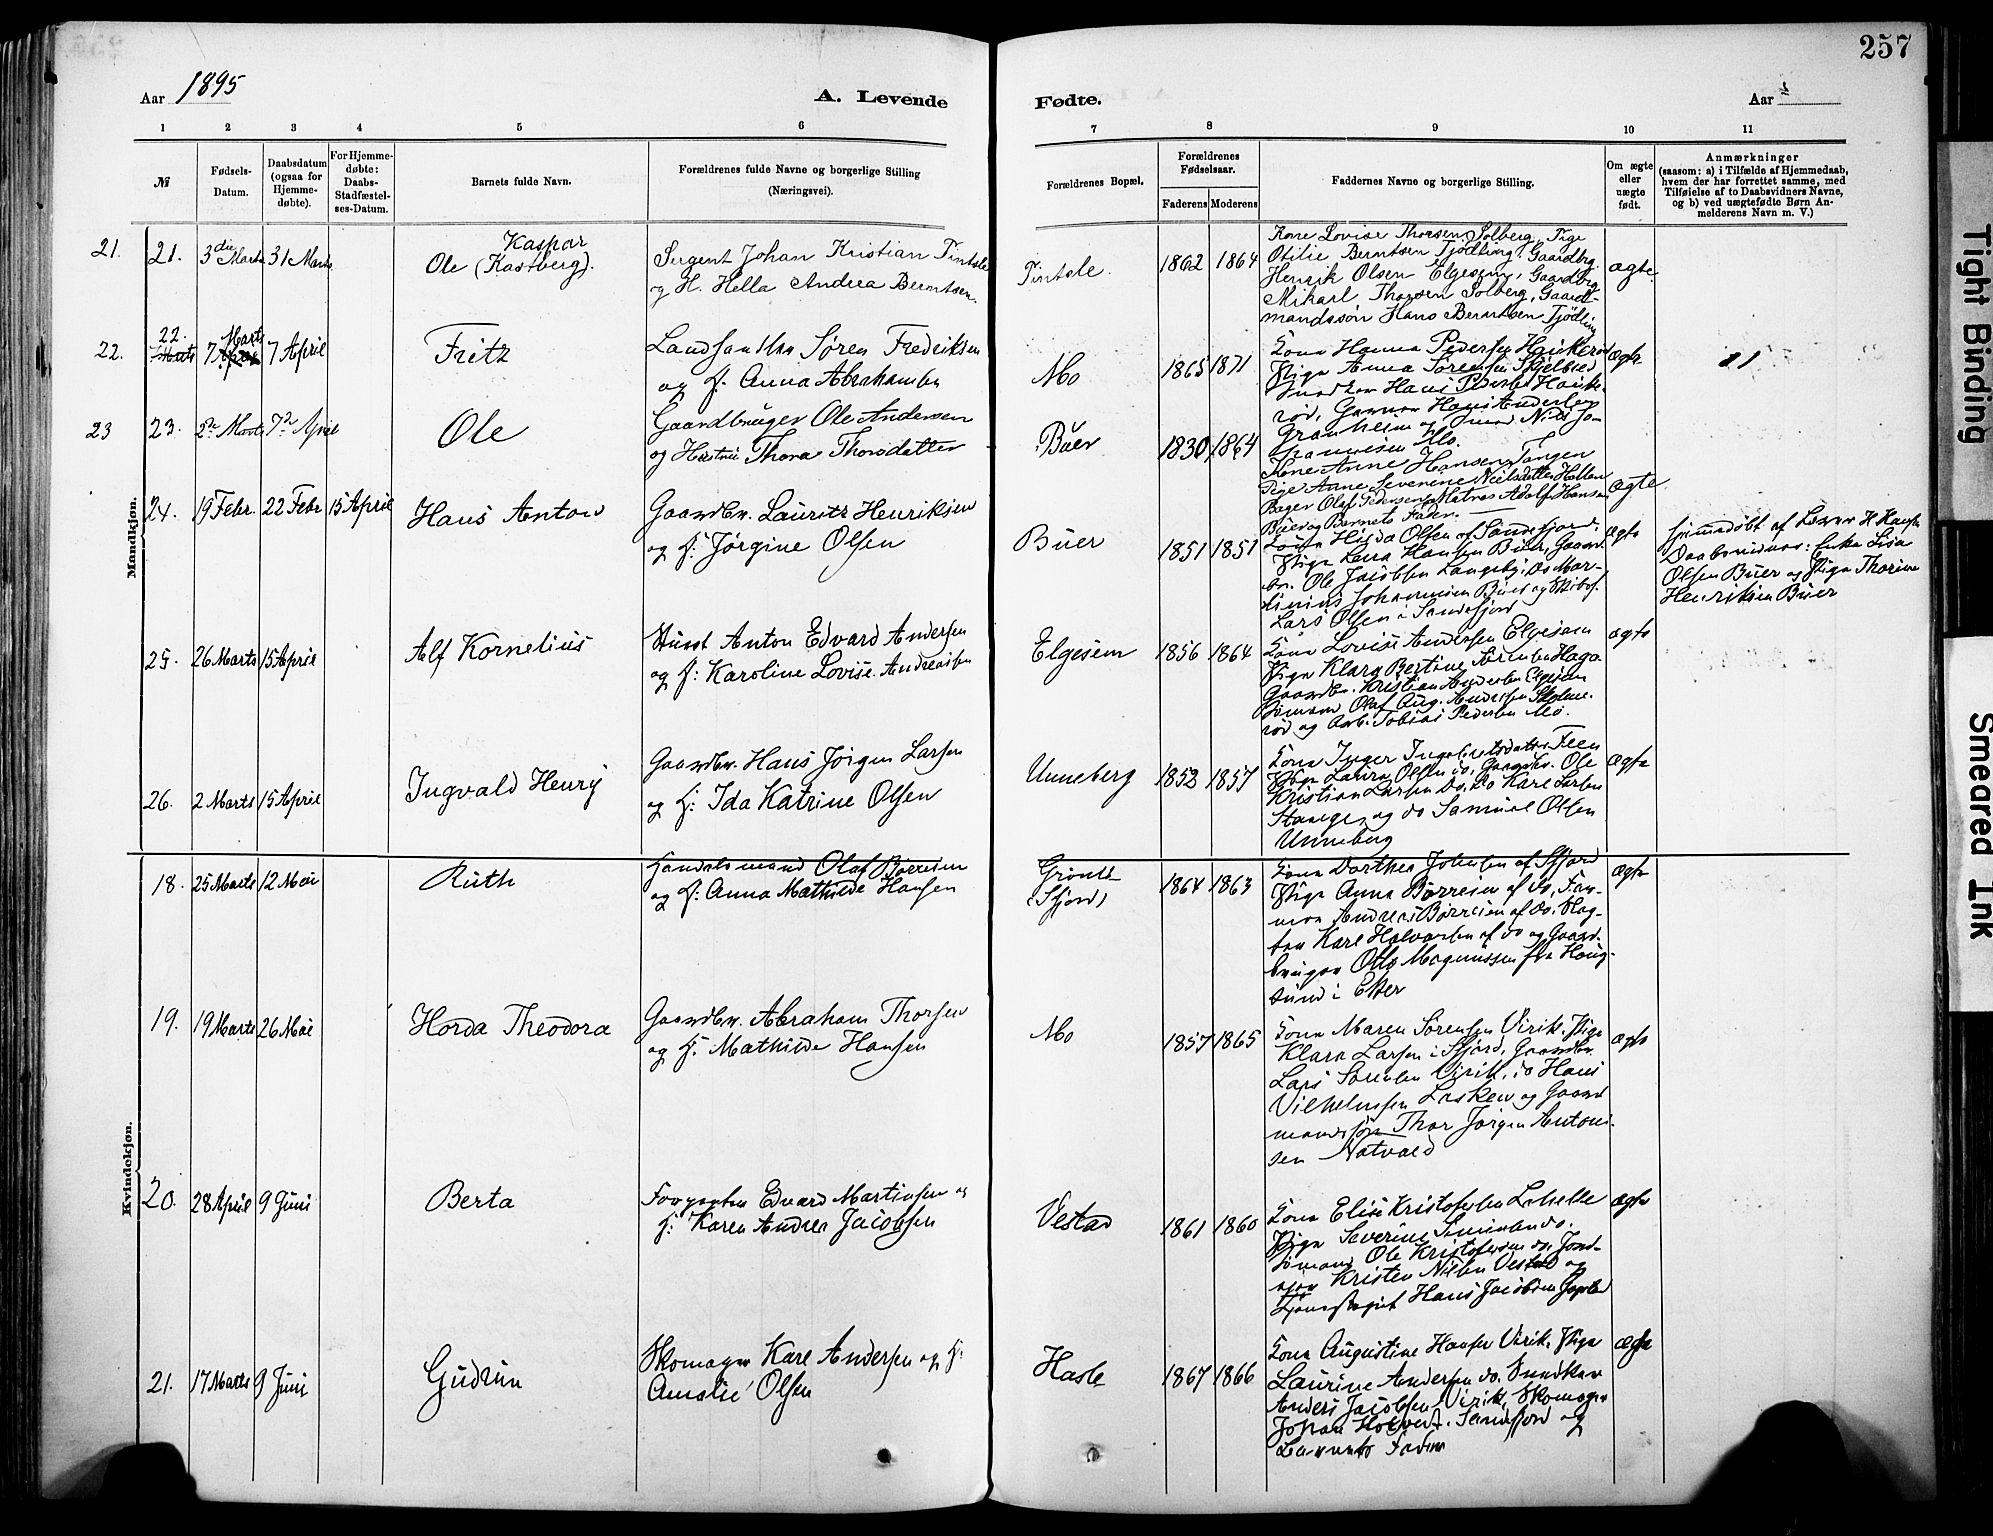 257
Aar 1895
A. Levende
Fødte.
Aar
1 2 3 4 5 6 7 8 9 10 11
№
Fødsels-
Datum.
Daabsdatum
(ogsaa for
Hjemme-
døbte).
For Hjemme-
døbte:
Daabs-
Stadfæstel-
ses-Datum.
Barnets fulde Navn.
Forældrenes fulde Navne og borgerlige Stilling
(Næringsvei).
Forældrenes Bopæl.
Forældrenes
Fødselsaar.
Faderens Moderens
Faddernes Navne og borgerlige Stilling.
Om ægte
eller
uægte
født.
Anmærkninger
(saasom: a) i Tilfælde af Hjemmedaab,
hvem der har forrettet samme, med
Tilføielse af to Daabsvidners Navne,
og b) ved uægtefødte Børn An-
melderens Navn m. V.)
Mandkjøn.
21. 21. 3die Marts 31 Marts
Kaspar
Ole (Kastberg).
Sergent Johan Kristian Tintsle
og H. Hella Andrea Berntsen.
Tintsle. 1862 1864
Kone Lovise Thorsen Solberg, Pige
Otilie Berntsen Tjödling, Gaardbrg.
Henrik Olsen Elgesem, Gaardbrg
Mikael Thorsen Solberg, Gaard-
mandssøn Hans Berntsen Tjödling
ægte
22. 22. 7 Marts 7 April
Fritz
Søren Fredriksen
og H. Anna Abrahamsen
Mo 1865 1871
Kone Hanna Pedersen Haukerød
Pige Anna Sørensen
Snedker Hans Pedersen Hauke-
rød, Hans Andersen
Granholm og Niels Jo-
hannesen Mo.
ægte
11
23 23. 2den Marts 7de April
Ole
Gaardbruger Ole Andersen
og Hustru Thora Thorsdatter
Buer 1830 1864
Kone Anne Hansen Tangen
Pige Anne Severene Nielsdatter
Bager Olaf Pedersen, Matros Adolf Hansen
Buer og Barnets Fader.
ægte
24. 19 Febr. 22 Febr 15 April
Hans Anton
Gaardbr. Lauritz Henriksen
og H: Jørgine Olsen
Buer 1851 1851
Kone Hilda Olsen af Sandefjord.
Pige Lena Hansen Buer, Gaard-
br. Ole Jacobsen Langeby, do Mar-
tinius Johannesen Buer og Skibsf.
Lars Olsen i Sandefjord
ægte
Hjemmedøbt af Lærer H Hansen
Daabsvidner: Enke Lisa
Olsen Buer og Pige Thorine
Henriksen Buer
25. 26 Marts 15 April
Alf Kornelius
Anton Edvard Andersen
og H: Karoline Lovise Andreasen
Elgesem 1856 1864
Kone Lovise Andersen Elgesem
Pige Klara Bertine
Gaardbr. Kristian Andersen Elgesem
Sømand Olaf Aug. Andersen
rød og Arb. Tobias Pedersen Mo.
ægte
26. 2 Marts 15 April
Ingvald Henry
Gaardbr. Hans Jørgen Larsen
og H: Ida Katrine Olsen
Unneberg 1852 1857
Kone Inger Ingebretsdatter Feen
Pige Laura Olsen do, Gaardbr. Ole
Kristian Larsen do, do Karl Larsen
Stange, og do Samuel Olsen
Unneberg
ægte
Kvindekjøn.
18. 25 Marts 12 Mai
Ruth
Handelsmand Olaf Børresen
og H: Anna Mathilde Hansen
(Sfjord) 1864 1863
Kone Dorthea Johansen af Sfjord
Pige Anna Børresen af do,
Andreas Børresen af do.
Karl Halvorsen af do og Gaard-
bruger Otto Magnussen fra Houg-
sund i Eker
ægte
19. 19 Marts 26 Mai
Horda Theodora
Gaardbr. Abraham Thorsen
og H: Mathilde Hansen
Mo 1857 1865
Kone Maren Sørensen Virik. Pige
Klara Larsen i Sfjord, Gaardbr.
Lars Sørensen Virik, do Hans
Vilhelmsen Lasken og Gaard
mandssøn Thor Jørgen Antoni-
sen Natvald
ægte
20. 28 April 9 Juni
Berta
Forpagter Edvard Martinsen og
H: Karen Andrea Jacobsen
Vestad 1861 1860
Kone Elise Kristofersen
Pige Severine Simensen do.
Sømand Ole Kristofersen do. Jord-
Kristen Nilsen Vestad og
Hans Jacobsen
ægte
21. 17 Marts 9 Juni
Gudrun
Skomager Karl Andersen og H:
Amalie Olsen
Hasle 1867 1866
Kone Augustine Hansen Virik. Pige
Laurine Andersen do. Snedker
Anders Jacobsen Virik, Skomager
Johan Sandefjord og
Barnets Fader
ægte
Tight Binding
Smeared Ink